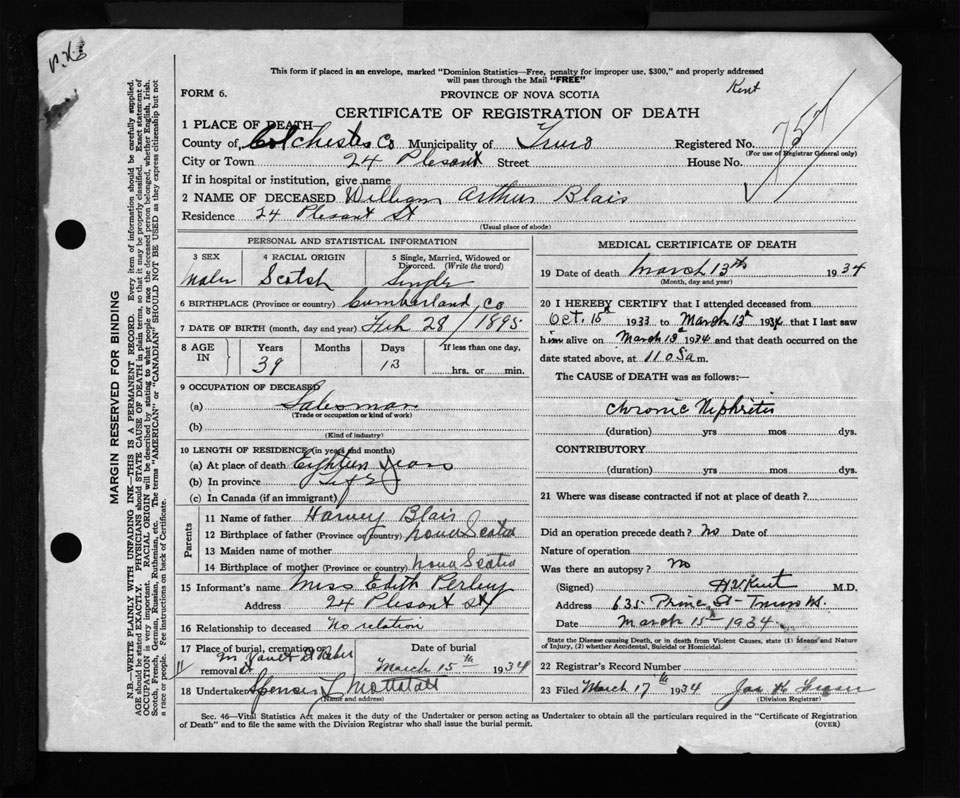 This form if placed in an envelope, marked "Dominion Statistics—Free, penalty for improper use, $300," and properly addressed
will pass through the Mail "FREE"
Kent
FORM 6.
PROVINCE OF NOVA SCOTIA
CERTIFICATE OF REGISTRATION OF DEATH
1 PLACE OF DEATH—
County of Colchester Co Municipality of Truro Registered No.
(For use of Registrar General only)
City or Town 24 Plesant Street House No.
If in hospital or institution, give name
2 NAME OF DECEASED William Arthur Blair
Residence 24 Plesant St
(Usual place of abode)
PERSONAL AND STATISTICAL INFORMATION
3 SEX 4 RACIAL ORIGIN 5 Single, Married, Widowed or Divorced. (Write the word)
Male Scotch Single
6 BIRTHPLACE (Province or country) Cumberland Co
7 DATE OF BIRTH (month, day and year) Feb 28/1895
8 AGE IN Years Months Days If less than one day,
39 13 hrs. or min.
9 OCCUPATION OF DECEASED
(a) Salesman
(Trade or occupation or kind of work)
(b)
(Kind of industry)
10 LENGTH OF RESIDENCE (in years and months)
(a) At place of death Eighteen years
(b) In province Life
(c) In Canada (if an immigrant)
Parents
11 Name of father Harvey Blair
12 Birthplace of father (Province or country) Nova Scotia
13 Maiden name of mother
14 Birthplace of mother (Province or country) Nova Scotia
15 Informant's name Miss Edith Perley
Address 24 Plesant St
16 Relationship to deceased No relation
17 Place of burial, cremation or removal Date of burial
March 15th 1934
18 Undertaker Spencer L
(Name and address)
MEDICAL CERTIFICATE OF DEATH
19 Date of death March 13th 1934
(Month, day and year)
20 I HEREBY CERTIFY that I attended deceased from
Oct. 15th 1933 to March 13th 1934 that I last saw
him alive on March 13th 1934 and that death occurred on the
date stated above, at 11 05 a m.
The CAUSE of DEATH was as follows:—
Chronic Nephritis
(duration) yrs mos dys.
CONTRIBUTORY
(duration) yrs mos dys.
21 Where was disease contracted if not at place of death?
Did an operation precede death? No Date of
Nature of operation
Was there an autopsy? No
(Signed) H V Kent M.D.
Address 635 Prince St - Truro N.S.
Date March 15th 1934
State the Disease causing Death, or in death from Violent Causes, state (1) Means and Nature
of Injury, (2) whether Accidental, Suicidal or Homicidal.
22 Registrar's Record Number
23 Filed March 17th 1934 Jas K
(Division Registrar)
Sec. 46—Vital Statistics Act makes it the duty of the Undertaker or person acting as Undertaker to obtain all the particulars required in the "Certificate of Registration
of Death" and to file the same with the Division Registrar who shall issue the burial permit.
(OVER)
MARGIN RESERVED FOR BINDING
N.B.—WRITE PLAINLY WITH UNFADING INK—THIS IS A PERMANENT RECORD. Every item of information should be carefully supplied.
AGE should be stated EXACTLY. PHYSICIANS should STATE CAUSE OF DEATH in plain terms, so that it may be properly classified. Exact statement of
OCCUPATION is very important. RACIAL ORIGIN will be described by stating to what people or race the deceased person belonged, whether English, Irish,
Scotch, French, German, Russian, Ruthenian, etc. The terms "AMERICAN" or "CANADIAN" SHOULD NOT BE USED as they express citizenship but not
a race or people. Fee instructions on back of Certificate.